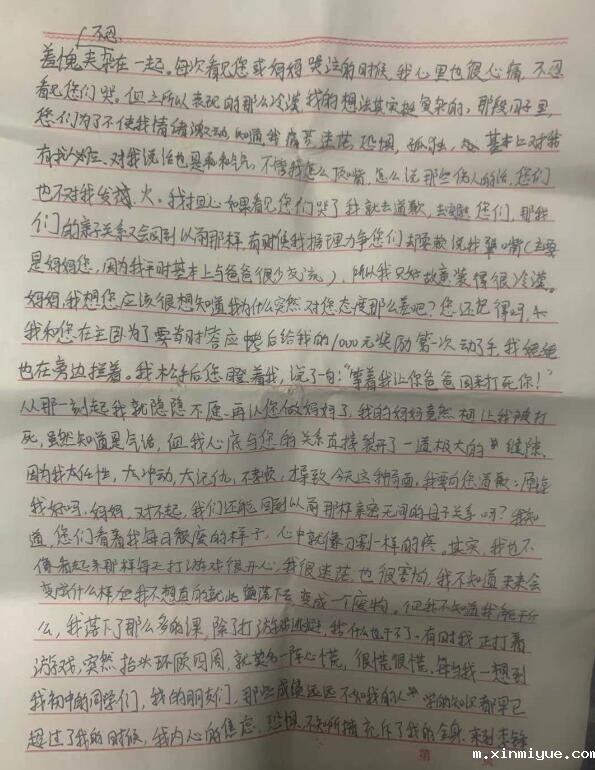 不忍
羞愧夹杂在一起。每次看见您或妈妈哭泣的时候,我心里也很心痛,不忍
看见您们哭。但之所以表现的那么冷漠,我的想法其实挺复杂的,那段日子里,
您们为了不使我情绪激动,知道我痛苦,迷茫,恐惧,孤独,基本上对我
有求必应、对我说话也是和和气气,不管我怎么顶嘴,怎么说那些伤人的话,您们
也不对我发火。我担心如果看见您们哭了我就去道歉,去安慰您们,那我
们的亲子关系又会回到以前那样,有时候我据理力争您们却要教说我犟嘴(主要
是妈妈您,因为我平时基本上与爸爸很少交流),所以我只好故意装得很冷漠。
妈妈,我想您应该很想知道我为什么突然对您态度那么差吧?您还记得吗,
我和您在主卧为了要当时答应给我的1000元奖励第一次动了手,我
也在旁边拦着。我松手后您瞪着我,说了一句:“等着我让你爸爸回来打死你!”
从那一刻起我就隐隐不愿再认您做妈妈了,我的妈妈竟然想让我被打
死,虽然知道是气话,但我心底与您的关系直接裂开了一道极大的缝隙,
因为我太任性,太冲动,太记仇,不,才导致今天这种局面,我要向您道歉:原谅
我好吗,妈妈,对不起,我们还能回到以前那样亲密无间的母子关系吗?我知
道,您们看着我每日颓废的样子,心中就像刀割一样的疼。其实,我也不
像看起来那样每天打游戏很开心,我很迷茫,也很害怕,我不知道未来会
变成什么样,但我不想真的就此堕落下去,变成一个废物。但我不知道我能干什
么,我落下了那么多的课,除了打游戏逃避,我什么也干不了。有时我正打着
游戏,突然抬头环顾四周,就莫名一阵心慌,很慌很慌。每当我一想到
我初中的同学们,我的朋友们,那些成绩远远不如我的人学的知识都早已
超过了我的时候,我内心的焦虑,恐惧,不知所措充斥了我的全身,来到
第
m.xinmiyue.com